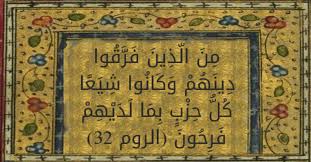 مِنَ الَّذِينَ فَرَّقُوا
دِينَهُمْ وَكَانُوا شِيَعًا
كُلُّ حِزْبٍ بِمَا لَدَيْهِمْ
فَرِحُونَ (الروم 32)